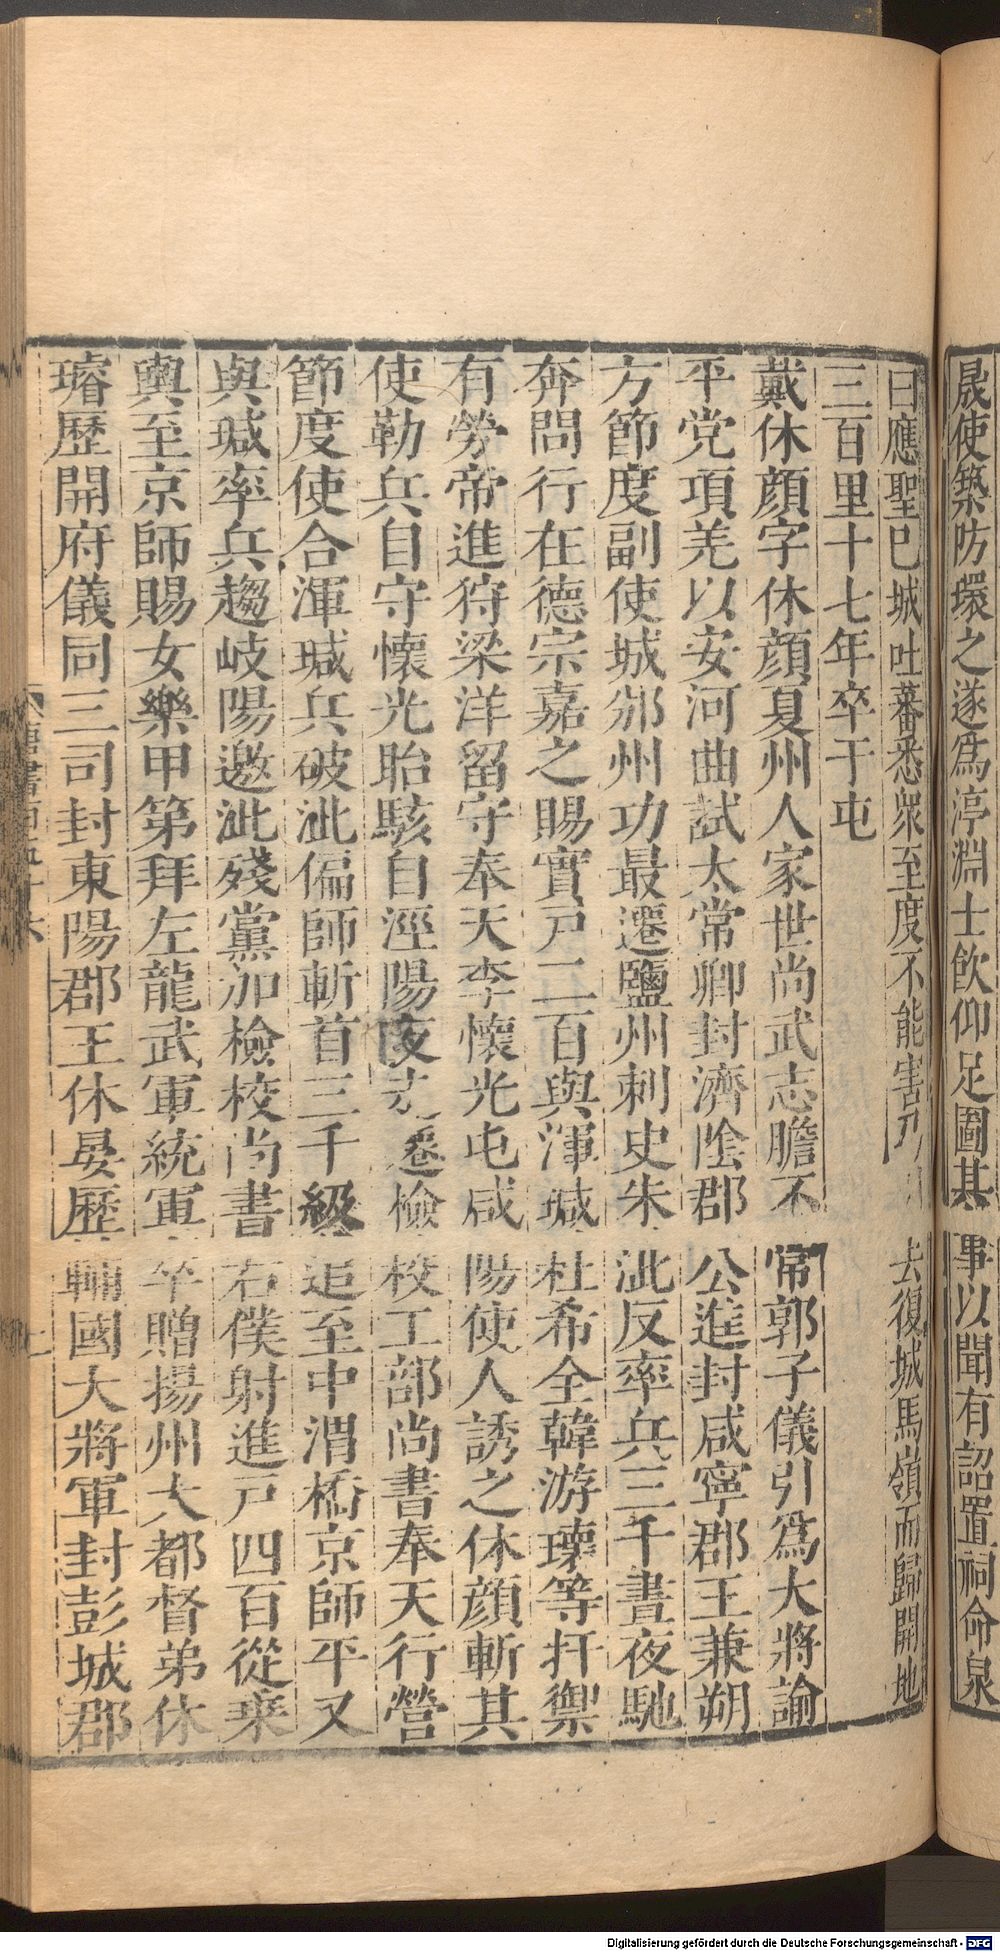 晟使築防環之遂爲渟淵士飲仰足圖其事以聞有詔置祠命泉
曰應聖已城吐蕃悉衆至度不能害乃去復城馬嶺而歸開地
三百里十七年卒于屯
戴休顔字休顔夏州人家世尚武志膽不常郭子儀引爲大將諭
平党項羌以安河曲試太常卿封濟陰郡公進封咸寧郡王兼朔
方節度副使城邠州功最遷鹽州刺史朱泚反率兵三千晝夜馳
奔問行在德宗嘉之賜實戶二百與渾瑊杜希全韓游瓌等扞禦
有勞帝進狩梁洋留守奉天李懷光屯咸陽使人誘之休顔斬其
使勒兵自守懷光眙駭自涇陽夜走遷檢校工部尚書奉天行營
節度使合渾瑊兵破泚偏師斬首三千級追至中渭橋京師平又
與瑊率兵趨岐陽邀泚殘黨加檢校尚書右僕射進戶四百從乘
輿至京師賜女樂甲第拜左龍武軍統軍卒贈揚州大都督弟休
璿歷開府儀同三司封東陽郡王休晏歷輔國大將軍封彭城郡
唐書百五十六
Digitalisierung gefördert durch die Deutsche Forschungsgemeinschaft - DFG